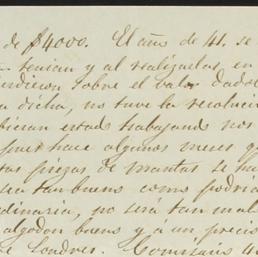 de $4000. El año de 41. se
tenian y al realizarlas, en
sobre el valor dado
dicha, no tuve la resolucion
estado trabajando nos
hace algunos meses que
piezas de mantas se ha
sea tan bueno como podria
ordinaria, no será tan mal
algodon bueno y á un precio
de Londres. Comisario 4